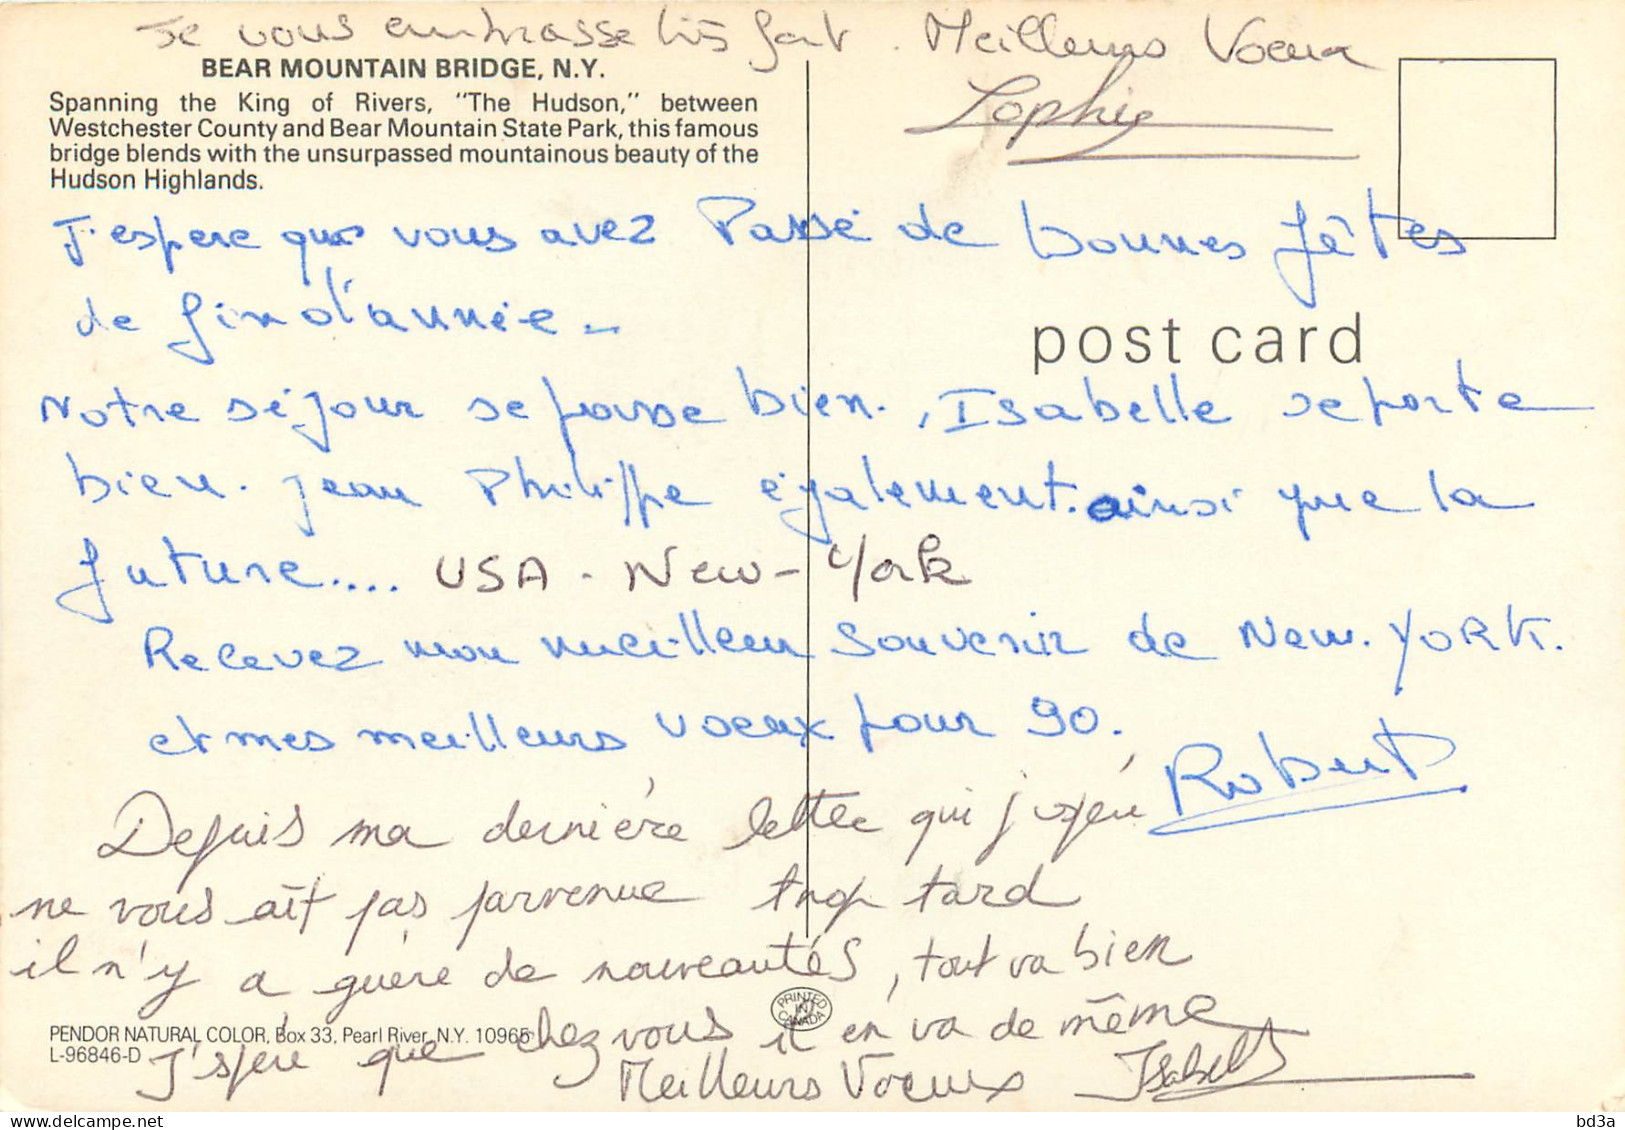 Je vous embrasse très fort. Meilleurs Voeux
Sophie
BEAR MOUNTAIN BRIDGE, N.Y.
Spanning the King of Rivers, "The Hudson," between
Westchester County and Bear Mountain State Park, this famous
bridge blends with the unsurpassed mountainous beauty of the
Hudson Highlands.
J'espere que vous avez Passé de bonnes fêtes
de fin d'année _
post card
Notre séjour se passe bien. , Isabelle se porte
bien. jean Philippe également. ainsi que la
future.... USA - New-York
Recevez mon meilleur souvenir de New. YORK.
et mes meilleurs voeux pour 90.
Robert
Depuis ma dernière lettre qui j'espère
ne vous aît pas parvenue trop tard
il n'y a guère de nouveautés, tout va bien
PRINTED IN CANADA
PENDOR NATURAL COLOR, Box 33, Pearl River, N.Y. 10965
L-96846-D
J'spère que chez vous il en va de même
Meilleurs Voeux Isabelle
bd3a